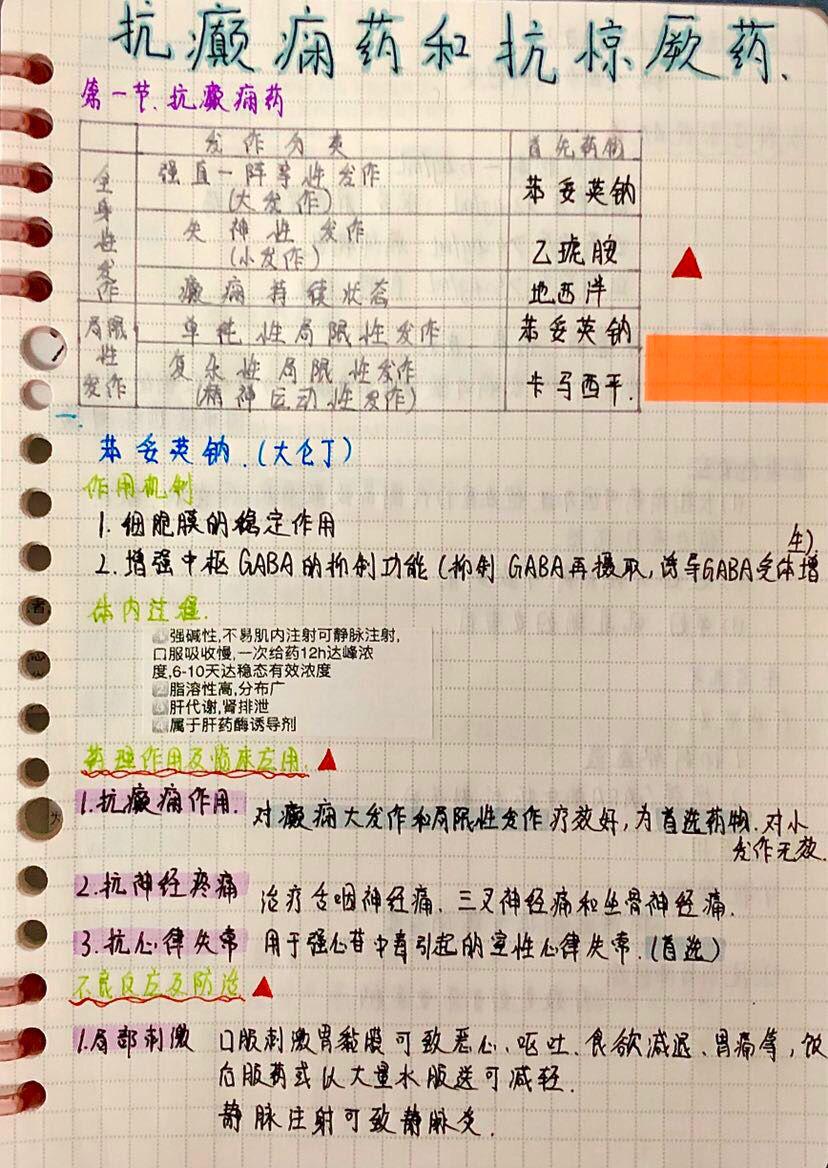 抗癫痫药和抗惊厥药.
第一节.抗癫痫药
发作分类 首先药物
全身性发作 强直一阵挛性发作
(大发作) 苯妥英钠
失神性发作
(小发作) 乙琥胺
癫痫持续状态 地西泮
局限性发作 单纯性局限性发作 苯妥英钠
复杂性局限性发作
(精神运动性发作) 卡马西平.
一.
苯妥英钠.(大仑丁)
作用机制
1.细胞膜的稳定作用
2.增强中枢GABA的抑制功能(抑制GABA再摄取,诱导GABA受体增
生)
体内过程.
①强碱性,不易肌内注射可静脉注射,
口服吸收慢,一次给药12h达峰浓
度,6-10天达稳态有效浓度
②脂溶性高,分布广
③肝代谢,肾排泄
④属于肝药酶诱导剂
药理作用及临床应用.
1.抗癫痫作用. 对癫痫大发作和局限性发作疗效好,为首选药物.对小
发作无效.
2.抗神经疼痛 治疗舌咽神经痛.三叉神经痛和坐骨神经痛.
3.抗心律失常 用于强心苷中毒引起的室性心律失常.(首选)
不良反应及防治
1.局部刺激 口服刺激胃黏膜可致恶心、呕吐、食欲减退、胃痛等,饭
后服药或以大量水服送可减轻.
静脉注射可致静脉炎.